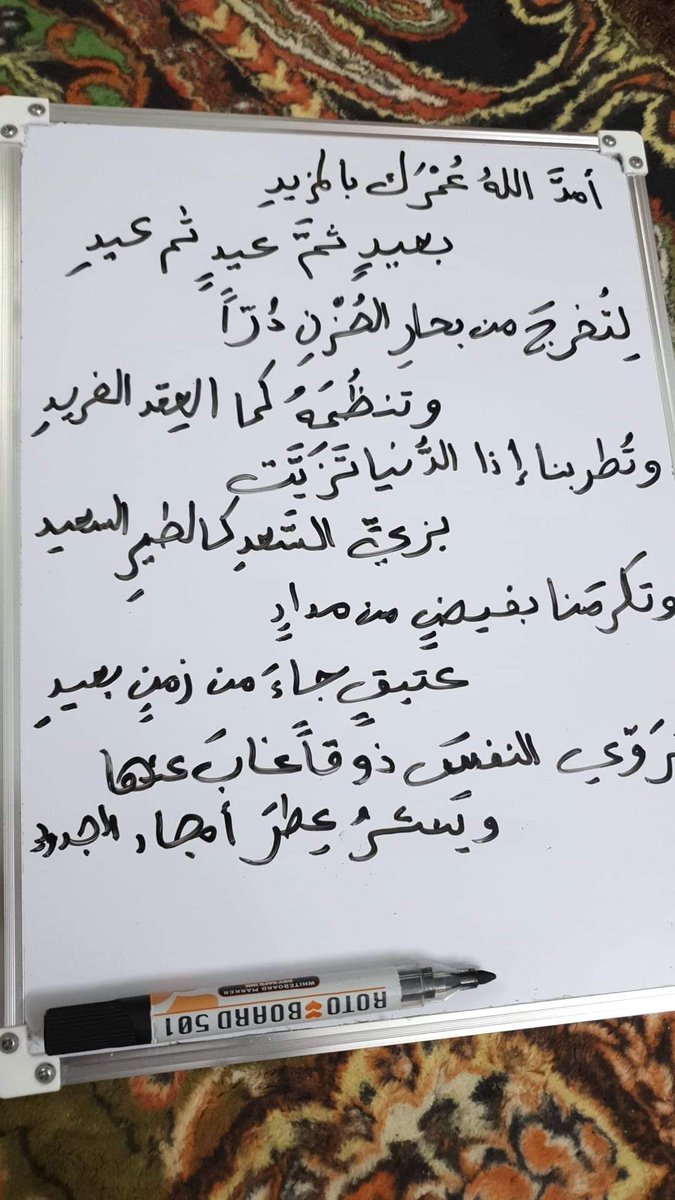 أمدَّ اللهُ عُمْرَك بالمزيدِ
بعيدٍ ثمَّ عيدٍ ثم عيدِ
لِتُخرجَ من بحارِ الحُزْنِ دُرّاً
وتنظُمَهُ كما العِقد الفريدِ
وتُطربنا إذا الدُّنيا تَزَيَّت
بزيِّ السَّعدِ كالطيرِ السعيدِ
وتكرمَنا بفيضٍ من مدادٍ
عتيقٍ جاءَ من زمنٍ بعيدِ
تروّي النفسَ ذوقاً غابَ عنها
وينشرُ عِطرَ أمجاد الجدود
ROTO BOARD 501
WHITEBOARD MARKER